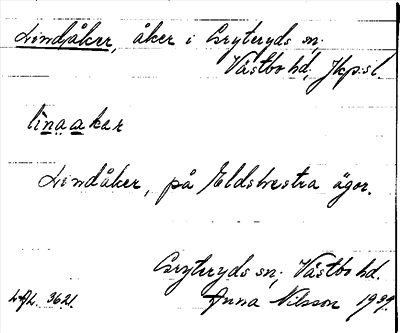 Lindåker, åker i Gryteryds sn;
Västbo hd. Jkp:sl.
lìnaakar
Lindåker, på Eldshestra ägor.
Gryteryds sn; Västbo hd.
LAL. 3621. Anna Nilsson 1939.